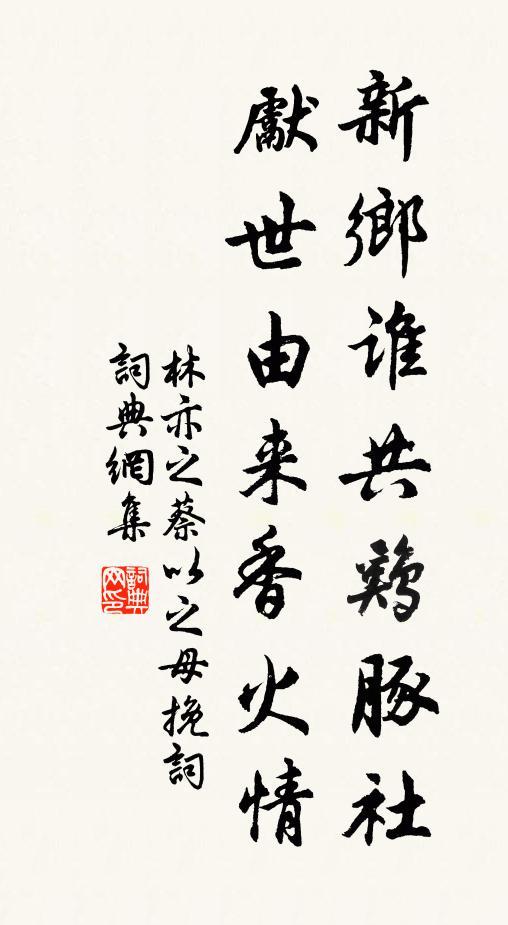 新鄉誰共鷄豚社
獻世由来香火情
林亦之蔡以之母挽詞
詞典網集
詞典網印